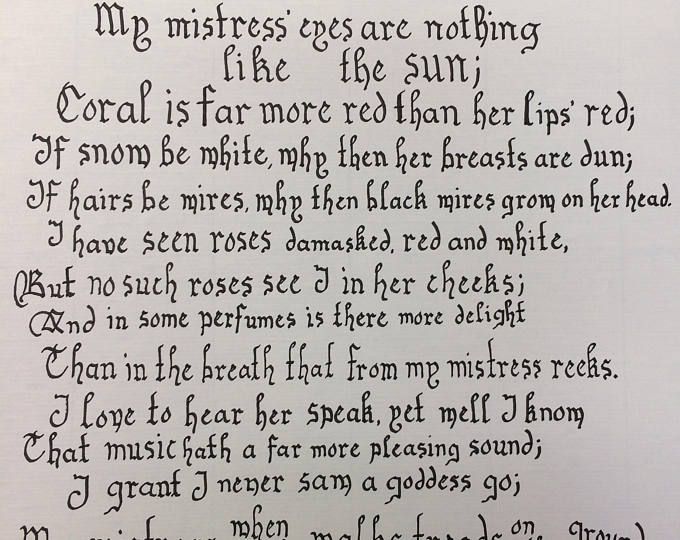 My mistress' eyes are nothing
like the sun;
Coral is far more red than her lips' red;
If snow be white, why then her breasts are dun;
If hairs be wires, why then black wires grow on her head.
I have seen roses damasked, red and white,
But no such roses see I in her cheeks;
And in some perfumes is there more delight
Than in the breath that from my mistress reeks.
I love to hear her speak, yet well I know
That music hath a far more pleasing sound;
I grant I never saw a goddess go;
My mistress when walks treads on ground